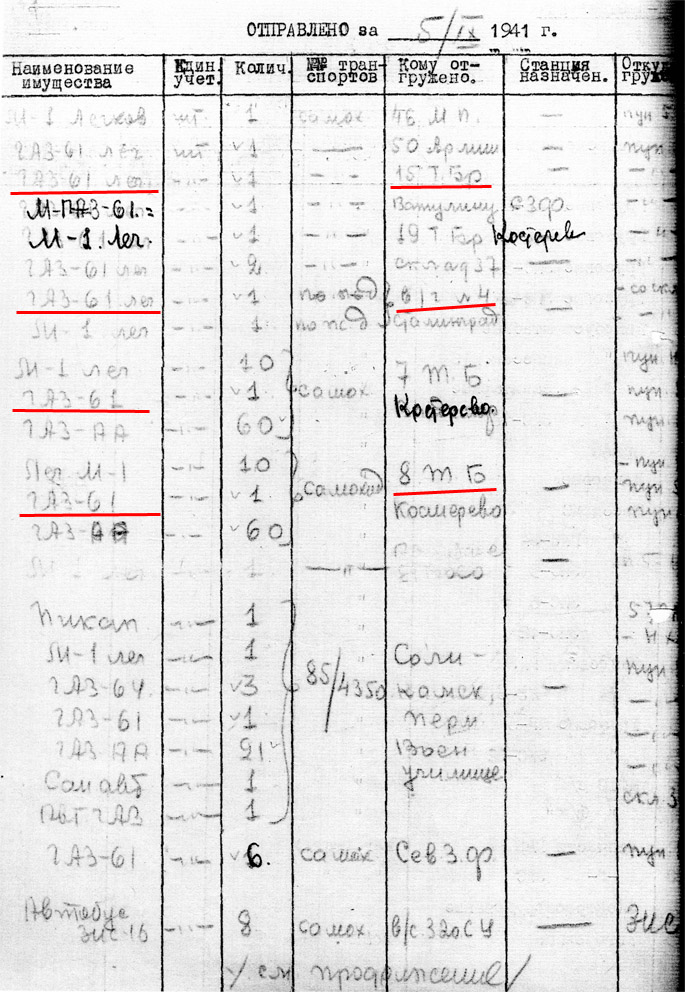 ОТПРАВЛЕНО за 5/IX 1941 г.
Наименование имущества Един. учет. Колич. №№ тран-спортов Кому от-гружено. Станция назначен. Отку груже
М-1 Легков шт. 1 самох 46 М П. — пун
ГАЗ-61 лег шт √1 —"— 50 Армии — пун
ГАЗ-61 лег. -"- √1 -"- 15 Т. Бр — -"-
М-ГАЗ-61. -"- √1 -"- Ватулину СЗФ. -"-
М-1. Лег. -"- √1 -"- 19 Т Бр Костерев -"-
ГАЗ-61 лег -"- √2 -"- склад 37 — -"-
ГАЗ-61 лег -"- √1 по ж/д в/г №4 —
М-1 лег -"- 1 по ж д Сталинград
М-1 лег -"- 10 7 Т. Б — пун
ГАЗ-61 -"- √1 самох Костерево. — пун
ГАЗ-АА -"- 60√ пун
Лег М-1 10 8 Т Б пун
ГАЗ-61 -"- √1 самоход — пун
ГАЗ-АА -"- √60 Костерево пун
М-1 лег 1 —"— —
Пикап -"- 1
М-1 лег -"- 1 Соли- пун
ГАЗ-64. -"- √3 85/4350 камск, — -"-
ГАЗ-61 -"- √1 Перм -"-
ГАЗ АА -"- 21√ Воен -"-
Сан авт -"- 1 училище
Авт. ГАЗ -"- 1 скл 3
ГАЗ-61 -"- √6. самох Сев З. ф. — пун
Автобус ЗИС-16 -"- 8 самох. — ЗИС
/ см продолжение /